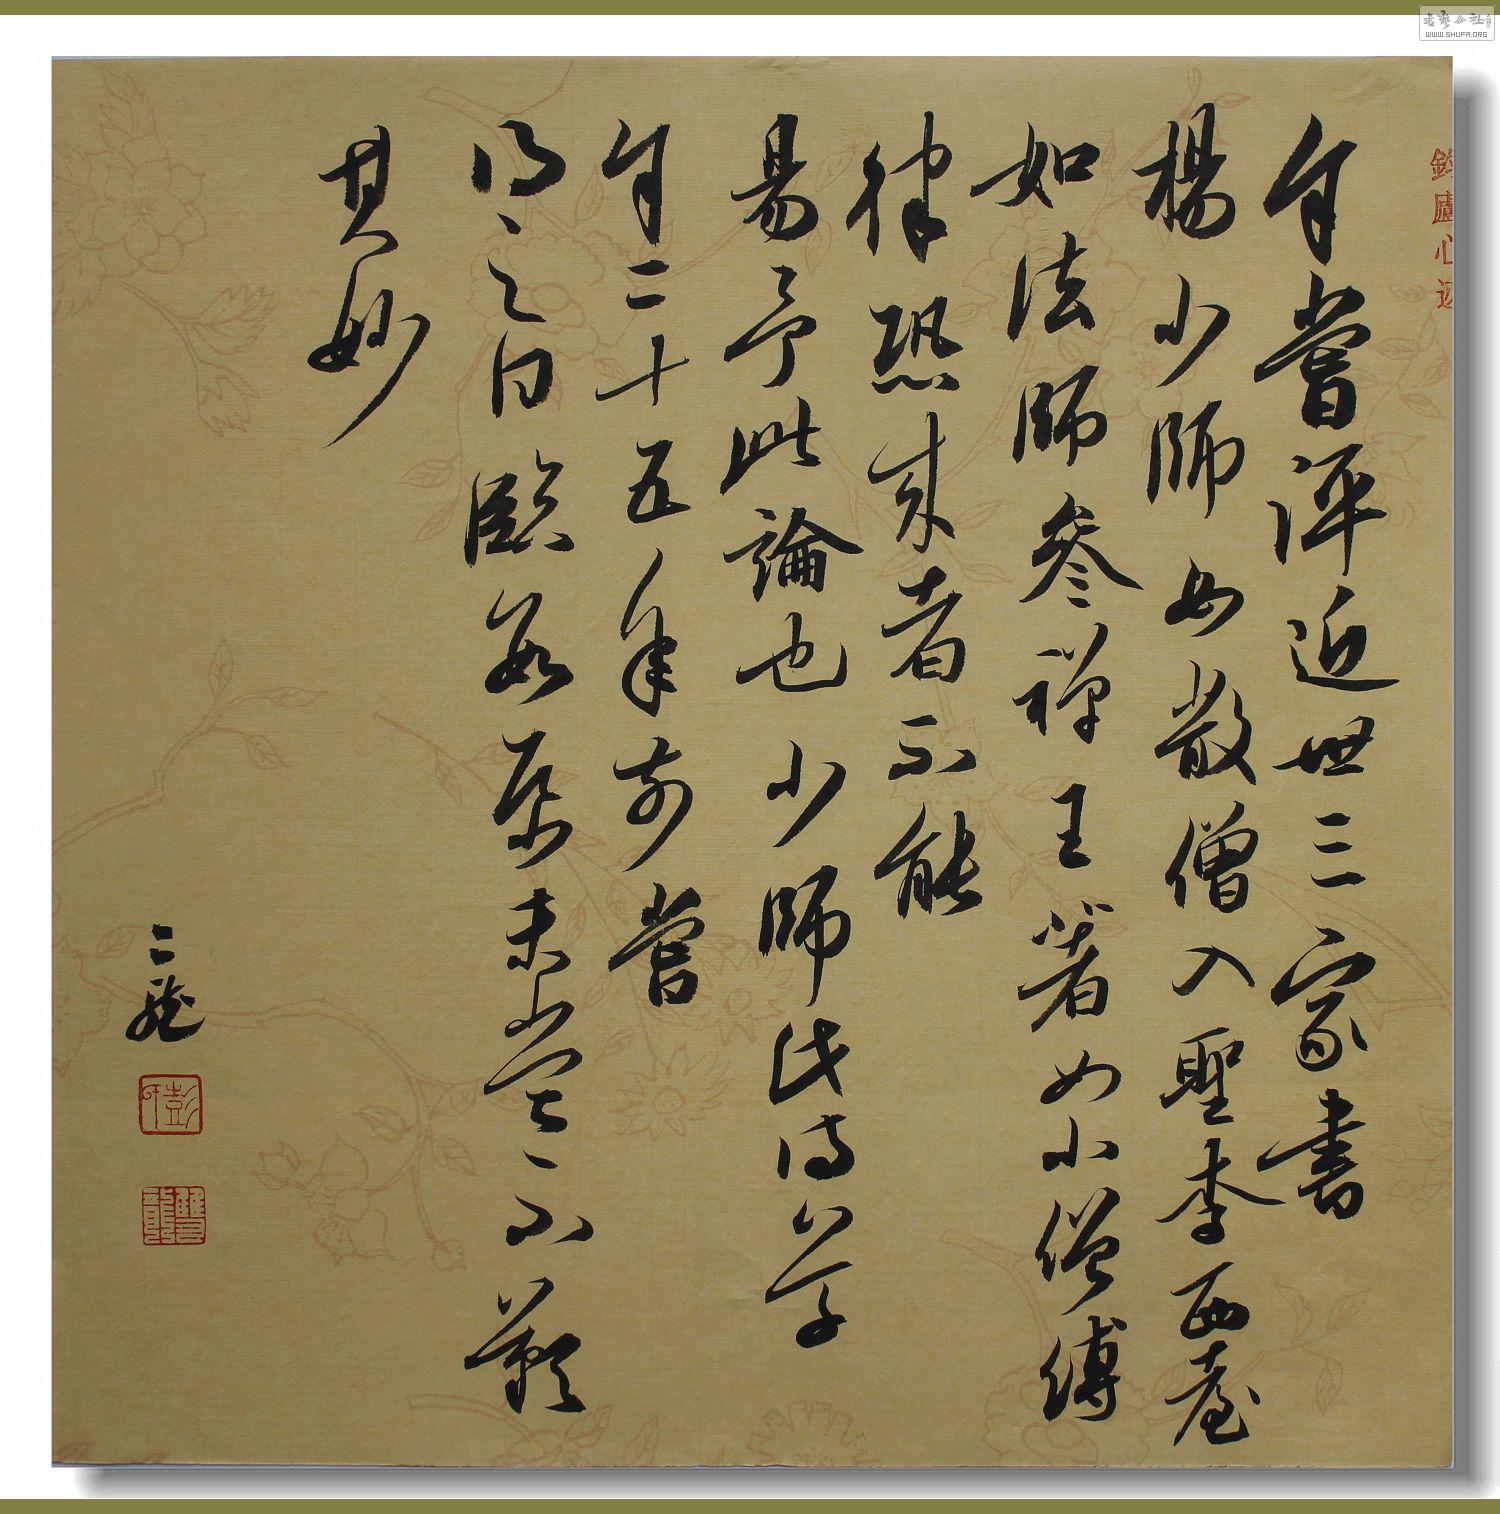 余嘗評近世三家書
楊少師如散僧入聖李西臺
如法師參禪王著如小僧縛
律恐來者不能
易予此論也少師此詩草
余二十五年前嘗
得之日臨數紙未嘗不歎
其妙
二龍
彭
雙龍
廬心迹
书艺公社
WWW.SHUFA.ORG